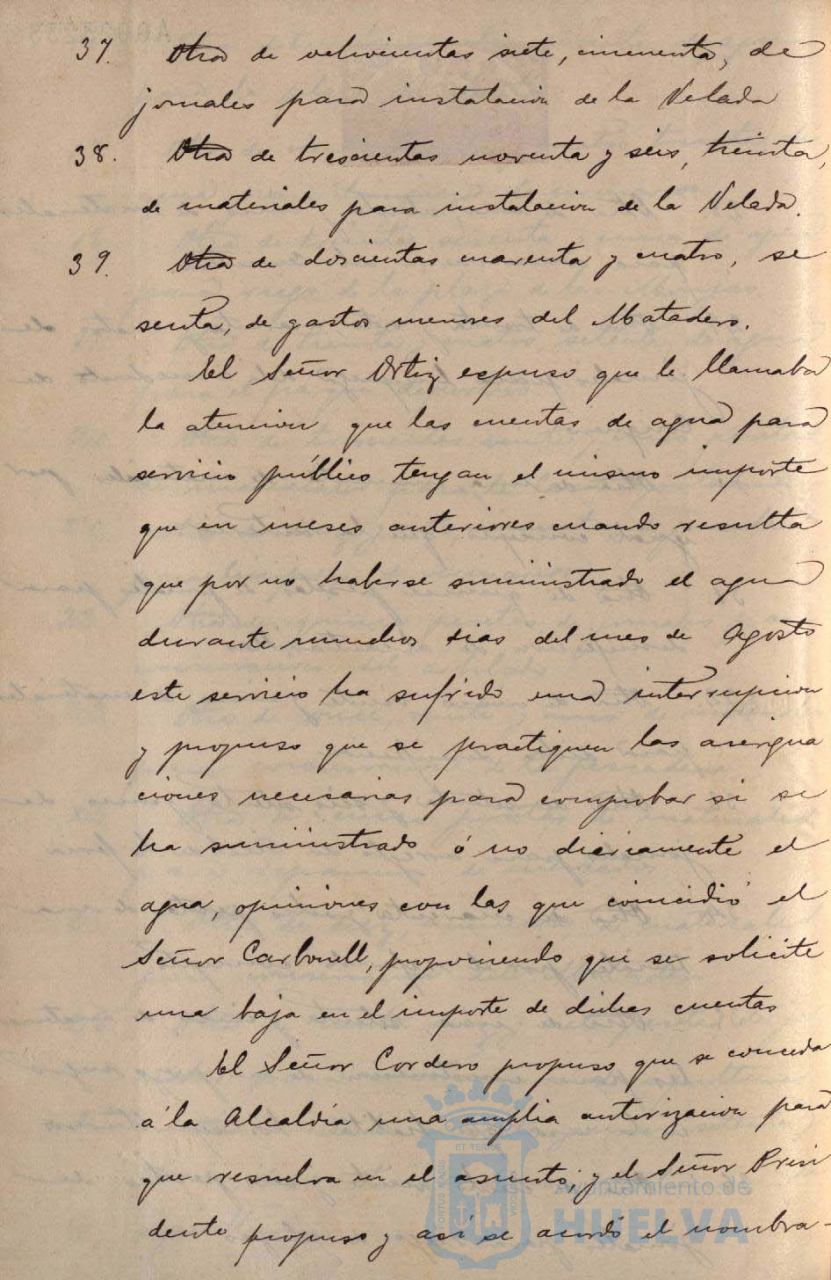 37. Otra de ochocientas siete, cincuenta, de
jornales para instalacion de la Velada
38. Otra de trescientas noventa y seis, treinta,
de materiales para instalacion de la Velada.
39. Otra de doscientas cuarenta y cuatro, se
senta, de gastos menores del Matadero.
El Señor Ortiz espuso que le llamaba
la atencion que las cuentas de agua para
servicio público tengan el mismo importe
que en meses anteriores cuando resulta
que por no haberse suministrado el agua
durante muchos dias del mes de Agosto
este servicio ha sufrido una interrupcion
y propuso que se practiquen las averigua
ciones necesarias para comprobar si se
ha suministrado ó no diariamente el
agua, opiniones con las que coincidió el
Señor Carbonell, proponiendo que se solicite
una baja en el importe de dichas cuentas
El Señor Cordero propuso que se conceda
á la Alcaldía una amplia autorizacion para
que resuelva en el asunto; y el Señor Presi
dente propuso y así se acordó el nombra-
Ayuntamiento de
HUELVA